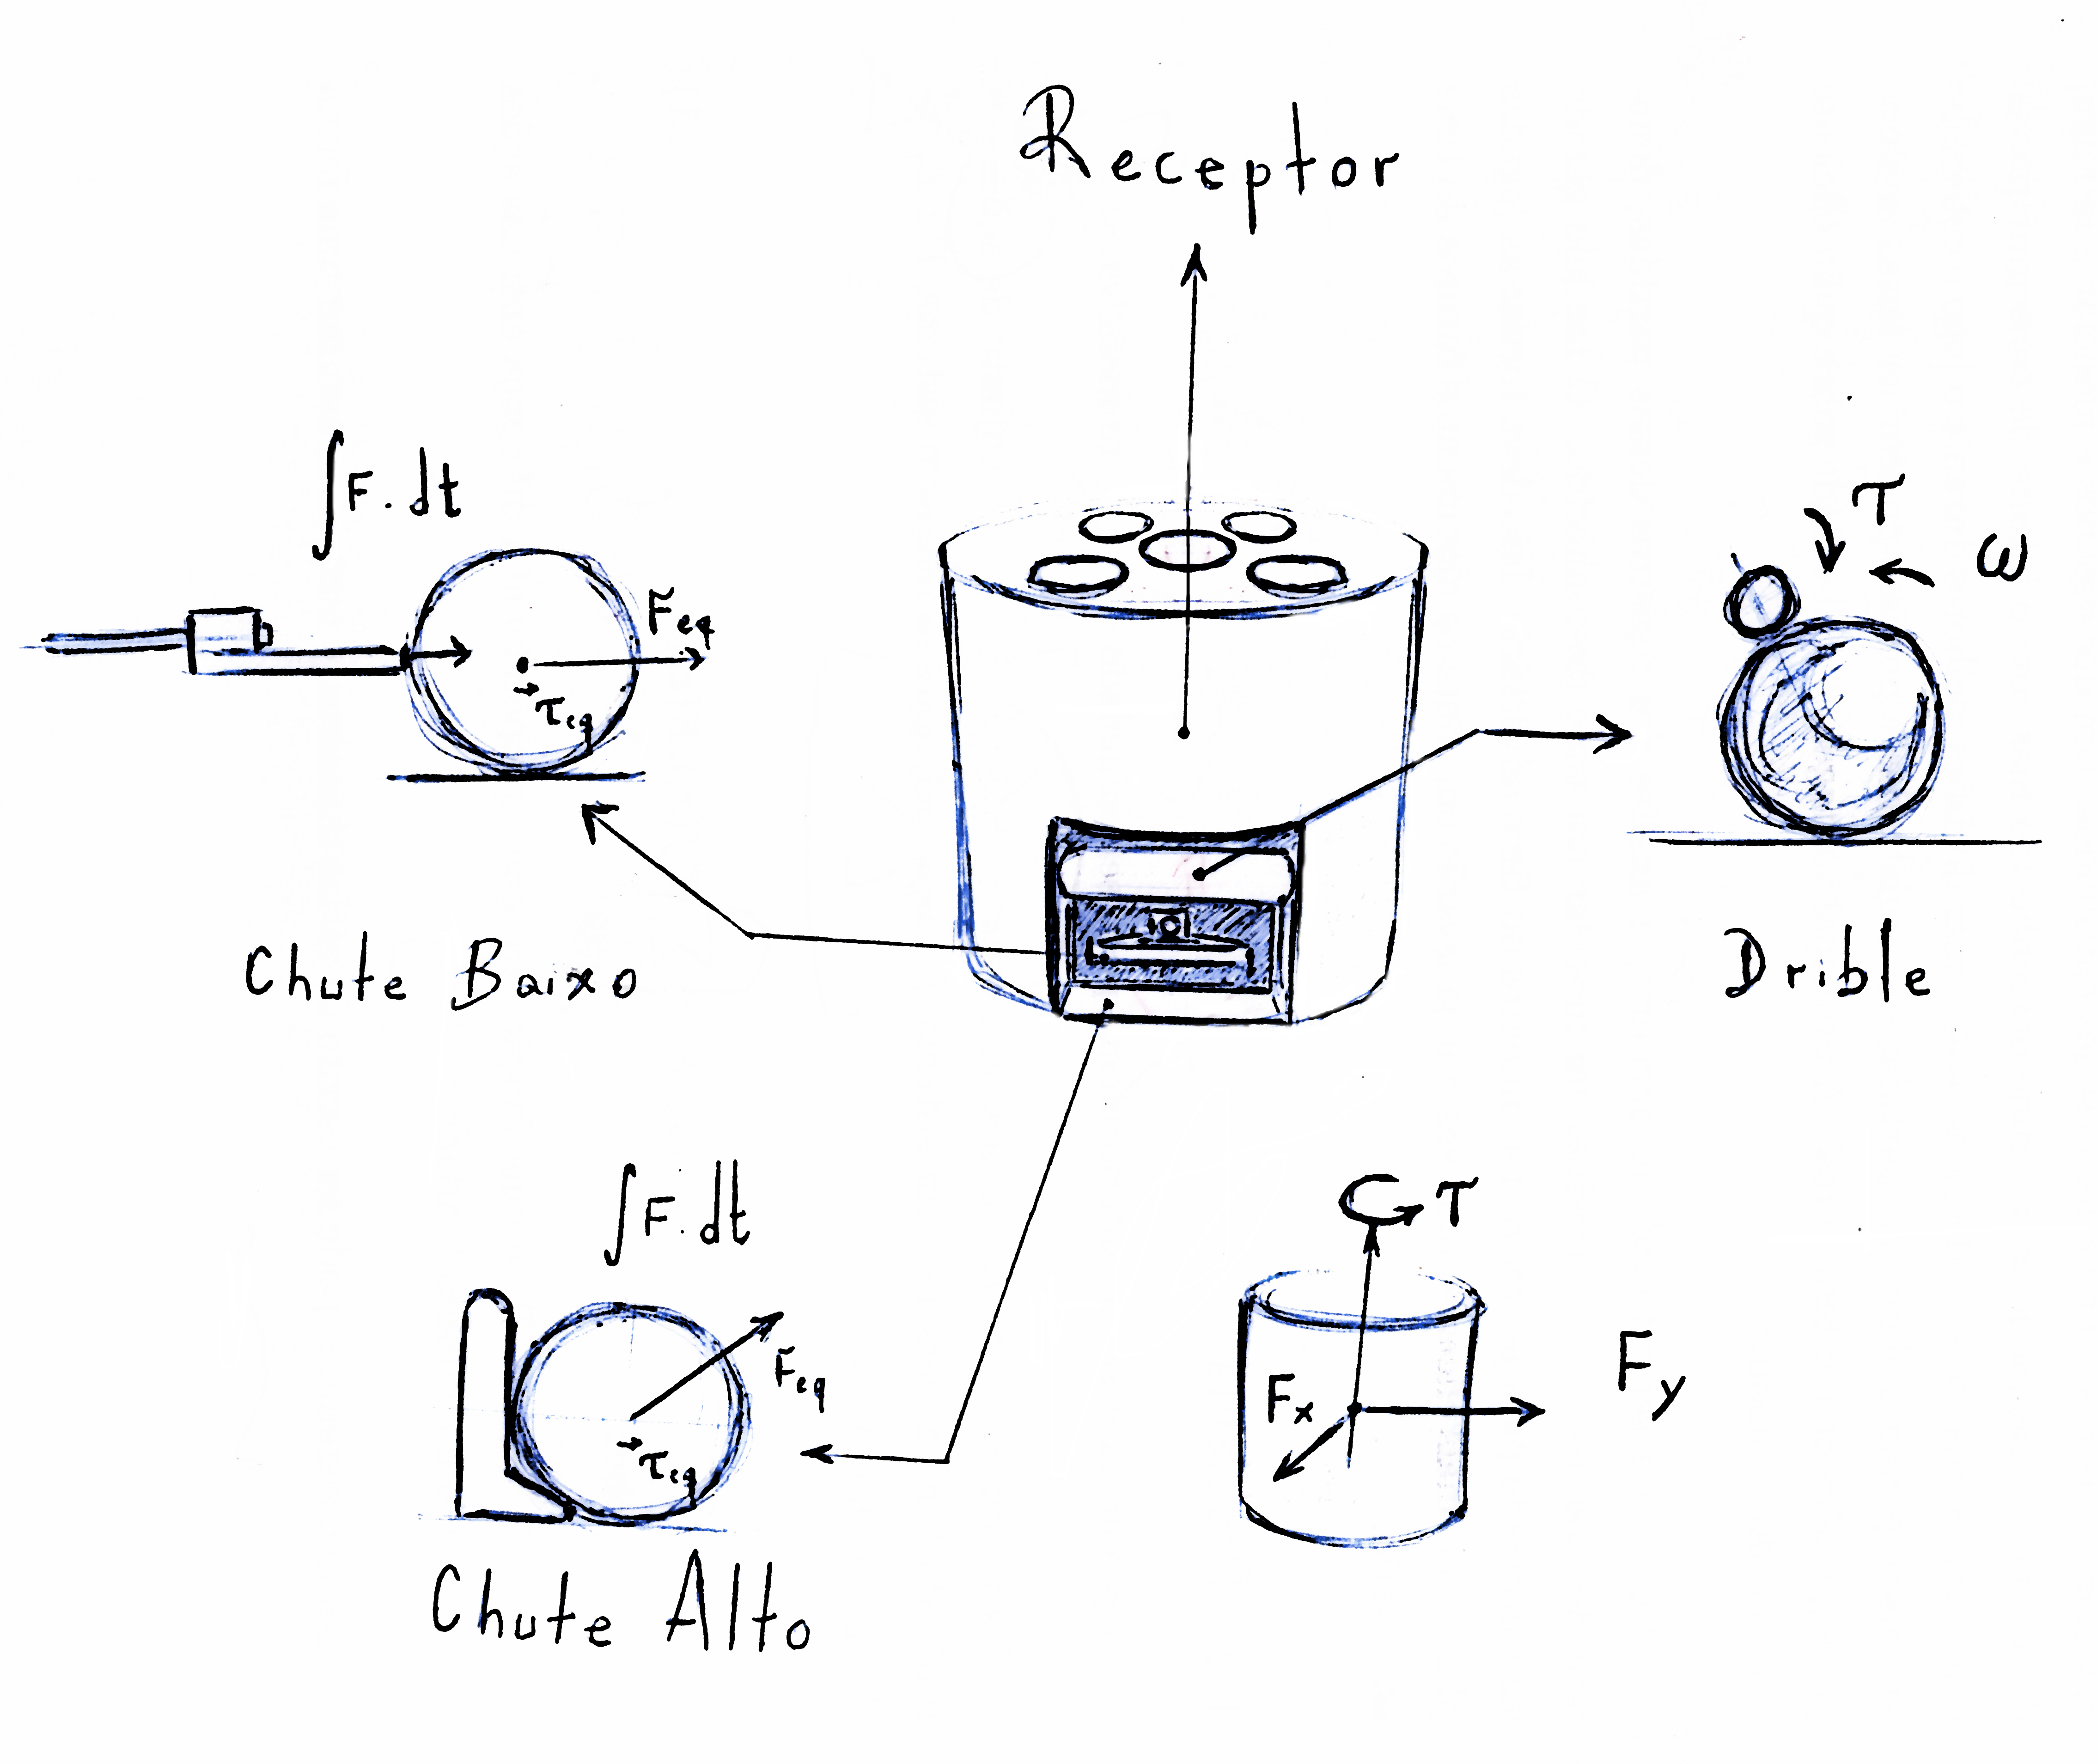 Receptor
∫F.dt
Feq
τeq
τ
ω
Chute Baixo
Drible
∫F.dt
Feq
τeq
Chute Alto
τ
Fx
Fy